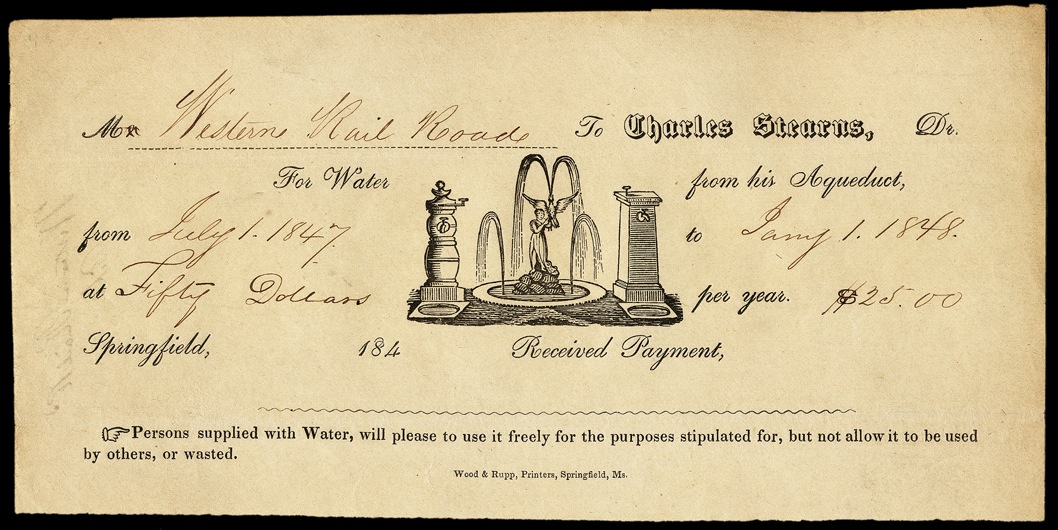 Mr Western Rail Roade To Charles Stearns, Dr.
For Water from his Aqueduct,
from July 1. 1847 to Jany 1. 1848.
at Fifty Dollars per year. $25.00
Springfield, 184 Received Payment,
☞Persons supplied with Water, will please to use it freely for the purposes stipulated for, but not allow it to be used
by others, or wasted.
Wood & Rupp, Printers, Springfield, Ms.